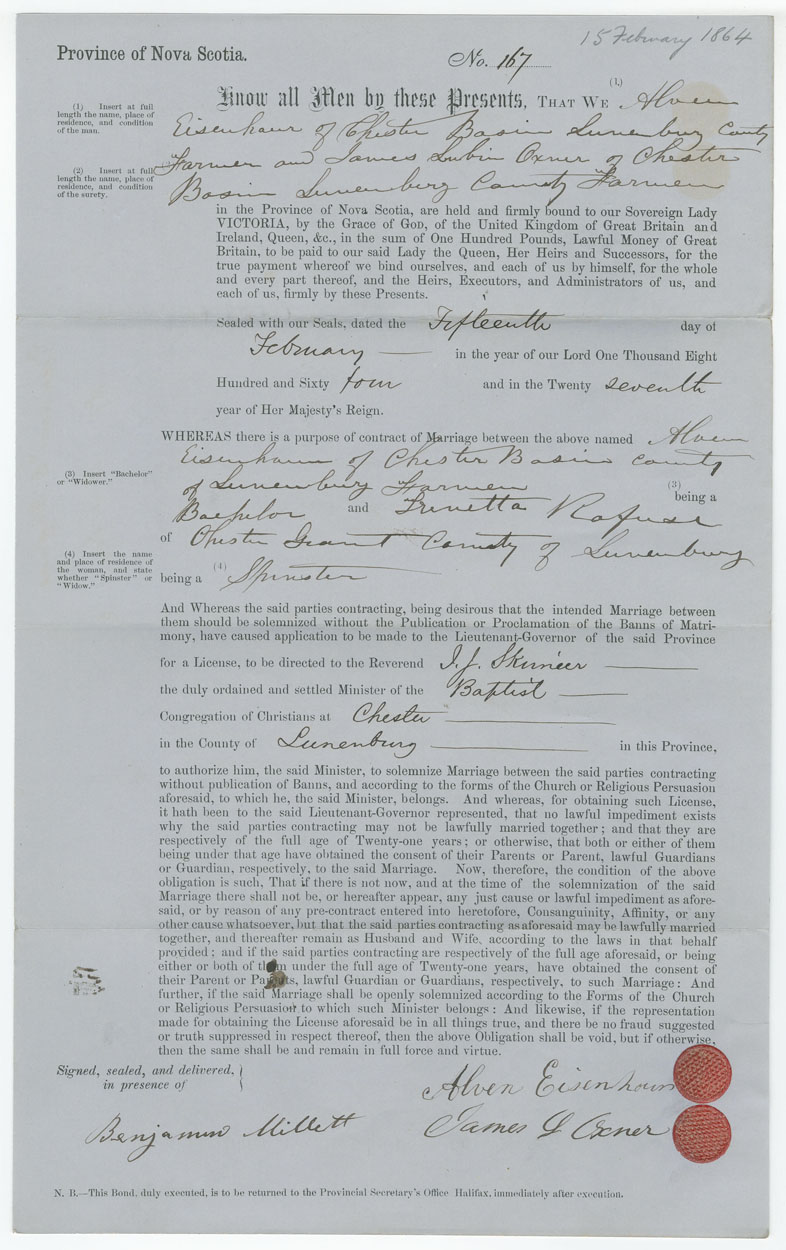 15 February 1864
Province of Nova Scotia.
No. 167
(1) Insert at full
length the name, place of
residence, and condition
of the man.
Know all Men by these Presents, THAT WE (1.) Alven
Eisenhaur of Chester Basin Lunenburg County
Farmer and James Lubin Oxner of Chester
(2) Insert at full
length the name, place of
residence, and condition
of the surety.
Basin Lunenburg County Farmer
in the Province of Nova Scotia, are held and firmly bound to our Sovereign Lady
VICTORIA, by the Grace of GOD, of the United Kingdom of Great Britain and
Ireland, Queen, &c., in the sum of One Hundred Pounds, Lawful Money of Great
Britain, to be paid to our said Lady the Queen, Her Heirs and Successors, for the
true payment whereof we bind ourselves, and each of us by himself, for the whole
and every part thereof, and the Heirs, Executors, and Administrators of us, and
each of us, firmly by these Presents.
Sealed with our Seals, dated the Fifteenth day of
February in the year of our Lord One Thousand Eight
Hundred and Sixty four and in the Twenty seventh
year of Her Majesty's Reign.
WHEREAS there is a purpose of contract of Marriage between the above named Alven
Eisenhaur of Chester Basin County
(3) Insert "Bachelor"
or "Widower."
of Lunenburg Farmer (3) being a
Bachelor and Trinetta Rafuse
of Chester Grant County of Lunenburg
(4) Insert the name
and place of residence of
the woman, and state
whether "Spinster" or
"Widow."
being a (4) Spinster
And Whereas the said parties contracting, being desirous that the intended Marriage between
them should be solemnized without the Publication or Proclamation of the Banns of Matri-
mony, have caused application to be made to the Lieutenant-Governor of the said Province
for a License, to be directed to the Reverend I. J. Skinner
the duly ordained and settled Minister of the Baptist
Congregation of Christians at Chester
in the County of Lunenburg in this Province,
to authorize him, the said Minister, to solemnize Marriage between the said parties contracting
without publication of Banns, and according to the forms of the Church or Religious Persuasion
aforesaid, to which he, the said Minister, belongs. And whereas, for obtaining such License,
it hath been to the said Lieutenant-Governor represented, that no lawful impediment exists
why the said parties contracting may not be lawfully married together; and that they are
respectively of the full age of Twenty-one years; or otherwise, that both or either of them
being under that age have obtained the consent of their Parents or Parent, lawful Guardians
or Guardian, respectively, to the said Marriage. Now, therefore, the condition of the above
obligation is such, That if there is not now, and at the time of the solemnization of the said
Marriage there shall not be, or hereafter appear, any just cause or lawful impediment as afore-
said, or by reason of any pre-contract entered into heretofore, Consanguinity, Affinity, or any
other cause whatsoever, but that the said parties contracting as aforesaid may be lawfully married
together, and thereafter remain as Husband and Wife, according to the laws in that behalf
provided; and if the said parties contracting are respectively of the full age aforesaid, or being
either or both of them under the full age of Twenty-one years, have obtained the consent of
their Parent or Parents, lawful Guardian or Guardians, respectively, to such Marriage: And
further, if the said Marriage shall be openly solemnized according to the Forms of the Church
or Religious Persuasion to which such Minister belongs: And likewise, if the representation
made for obtaining the License aforesaid be in all things true, and there be no fraud suggested
or truth suppressed in respect thereof, then the above Obligation shall be void, but if otherwise,
then the same shall be and remain in full force and virtue.
Signed, sealed, and delivered,
in presence of
Alven Eisenhaur
Benjamin Millett
James L Oxner
N. B.—This Bond, duly executed, is to be returned to the Provincial Secretary's Office Halifax, immediately after execution.